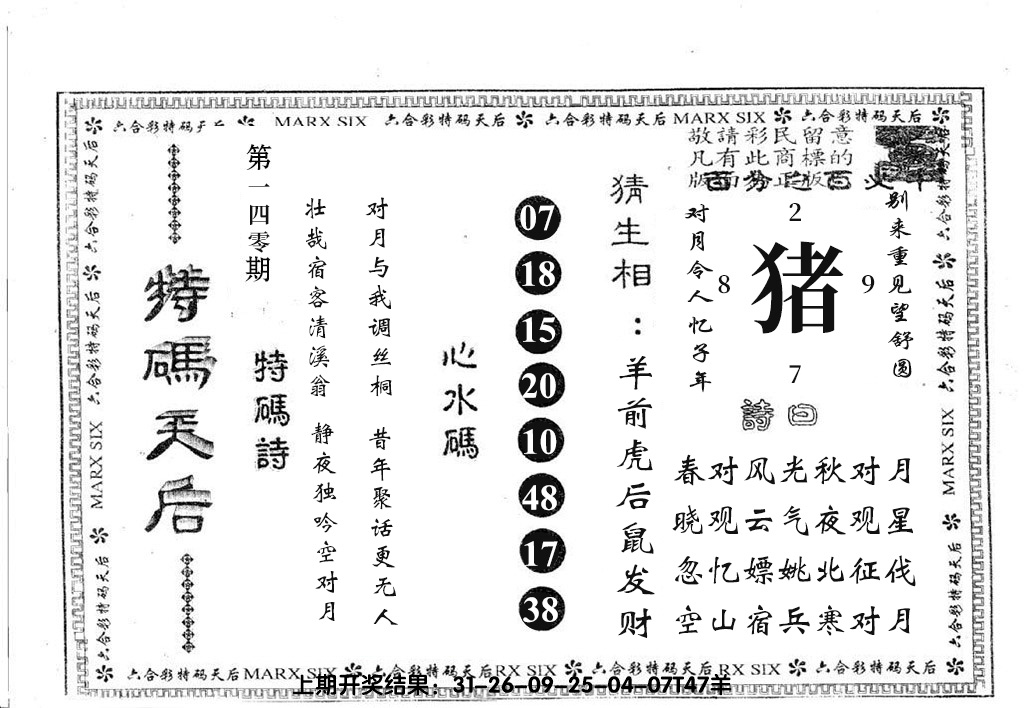 六合彩特码天后 MARX SIX 六合彩特码天后 六合彩特码天后 MARX SIX 六合彩特码天后
敬請彩民留意
凡有此商標的
版面為正版
别来重见望舒圆
猪
2
8
9
7
对月令人忆子年
詩曰
春对风光秋对月
晓观云气夜观星
忽忆嫖姚北征伐
空山宿兵寒对月
猜生相：羊前虎后鼠发财
07
18
15
20
10
48
17
38
心水碼
对月与我调丝桐 昔年聚话更无人
壮哉宿客清溪翁 静夜独吟空对月
第一四零期
特碼詩
特碼天后
六合彩特码天后 六合彩特码天后 MARX SIX 六合彩特码天后
六合彩特码天后 六合彩特码天后 MARX SIX 六合彩特码天后
六合彩特码天后 MARX SIX 六合彩特码天后 RX SIX 六合彩特码天后 RX SIX 六合彩特码天后
上期开奖结果：31-26-09-25-04-07T47羊